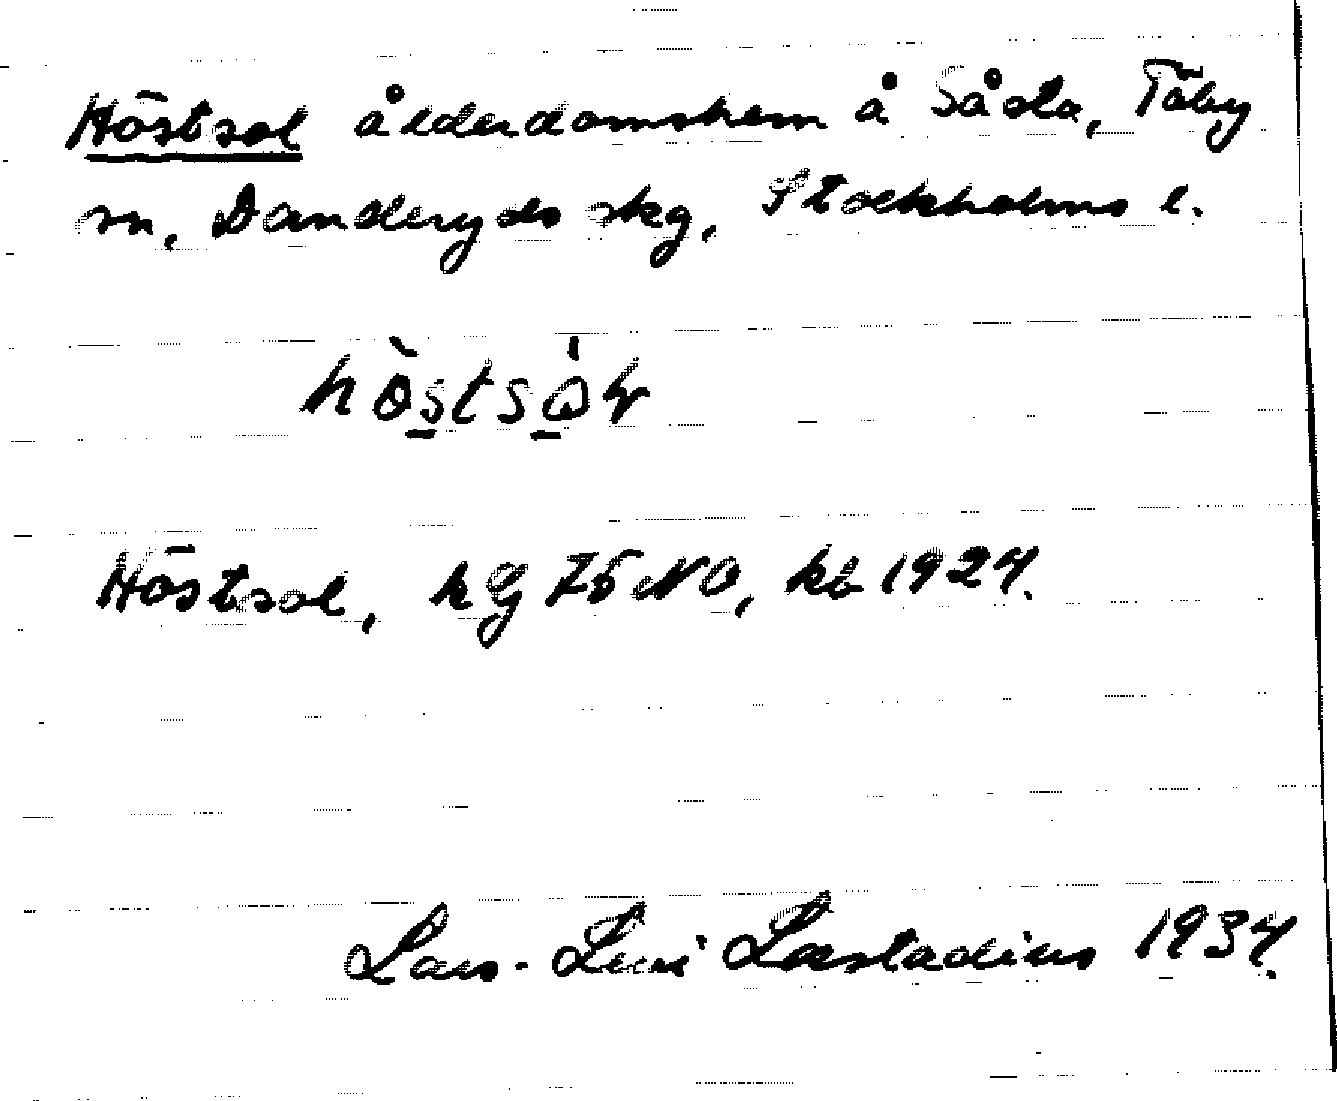 Höstsol ålderdomshem å Såsta, Täby
sn, Danderyds skg, Stockholms l.
Höstsol, hg 75 NO, kb 1924.
Lars-Levi Læstadius 1934.